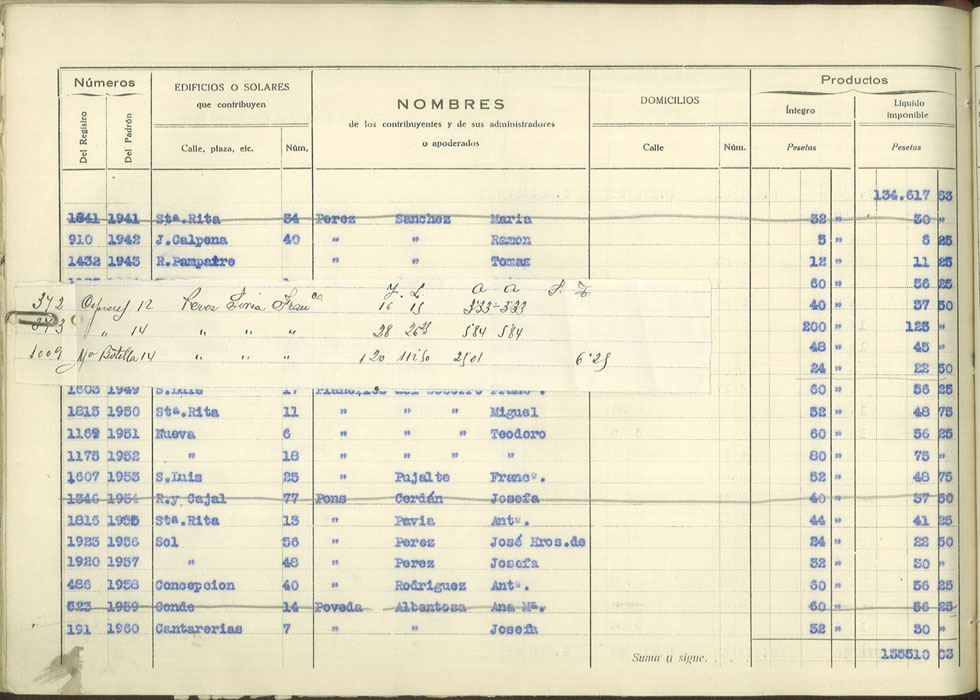 Números EDIFICIOS O SOLARES que contribuyen NOMBRES de los contribuyentes y de sus administradores o apoderados DOMICILIOS Productos
Del Registro Del Padrón Calle, plaza, etc. Núm. Calle Núm. Íntegro Pesetas Líquido imponible Pesetas
134.617 53
1841 1941 Stª.Rita 34 Perez Sanchez Maria 32 " 30 "
910 1942 J.Calpena 40 " " Ramon 5 " 6 25
1432 1943 R.Pampatre " " Tomas 12 " 11 25
60 " 56 25
372 12 Perez Franca 16 15 3'33 - 3'33
40 " 37 50
373 " 14 " " " 28 26'25 5'84 5'84
200 " 125 "
48 " 45 "
1009 Mª Botella 14 " " " 120 11250 2501 6'25
24 " 22 50
1603 1949 S.Luis 17 60 " 56 25
1815 1950 Stª.Rita 11 " " " Miguel 52 " 48 75
1162 1951 Nueva 6 " " " Teodoro 60 " 56 25
1175 1952 " 18 " " " " 80 " 75 "
1607 1953 S.Luis 25 " Pujalte Francº. 52 " 48 75
1346 1954 R.y Cajal 77 Pons Cerdán Josefa 40 " 37 50
1816 1955 Stª.Rita 13 " Pavia Antº. 44 " 41 25
1923 1956 Sol 56 " Perez José Hros.de 24 " 22 50
1920 1957 " 48 " Perez Josefa 32 " 30 "
486 1958 Concepcion 40 " Rodriguez Antº. 60 " 56 25
523 1959 Conde 14 Poveda Albentosa Ana Mª. 60 " 56 25
191 1960 Cantarerias 7 " " Josefa 32 " 30 "
Suma y sigue. 135510 03